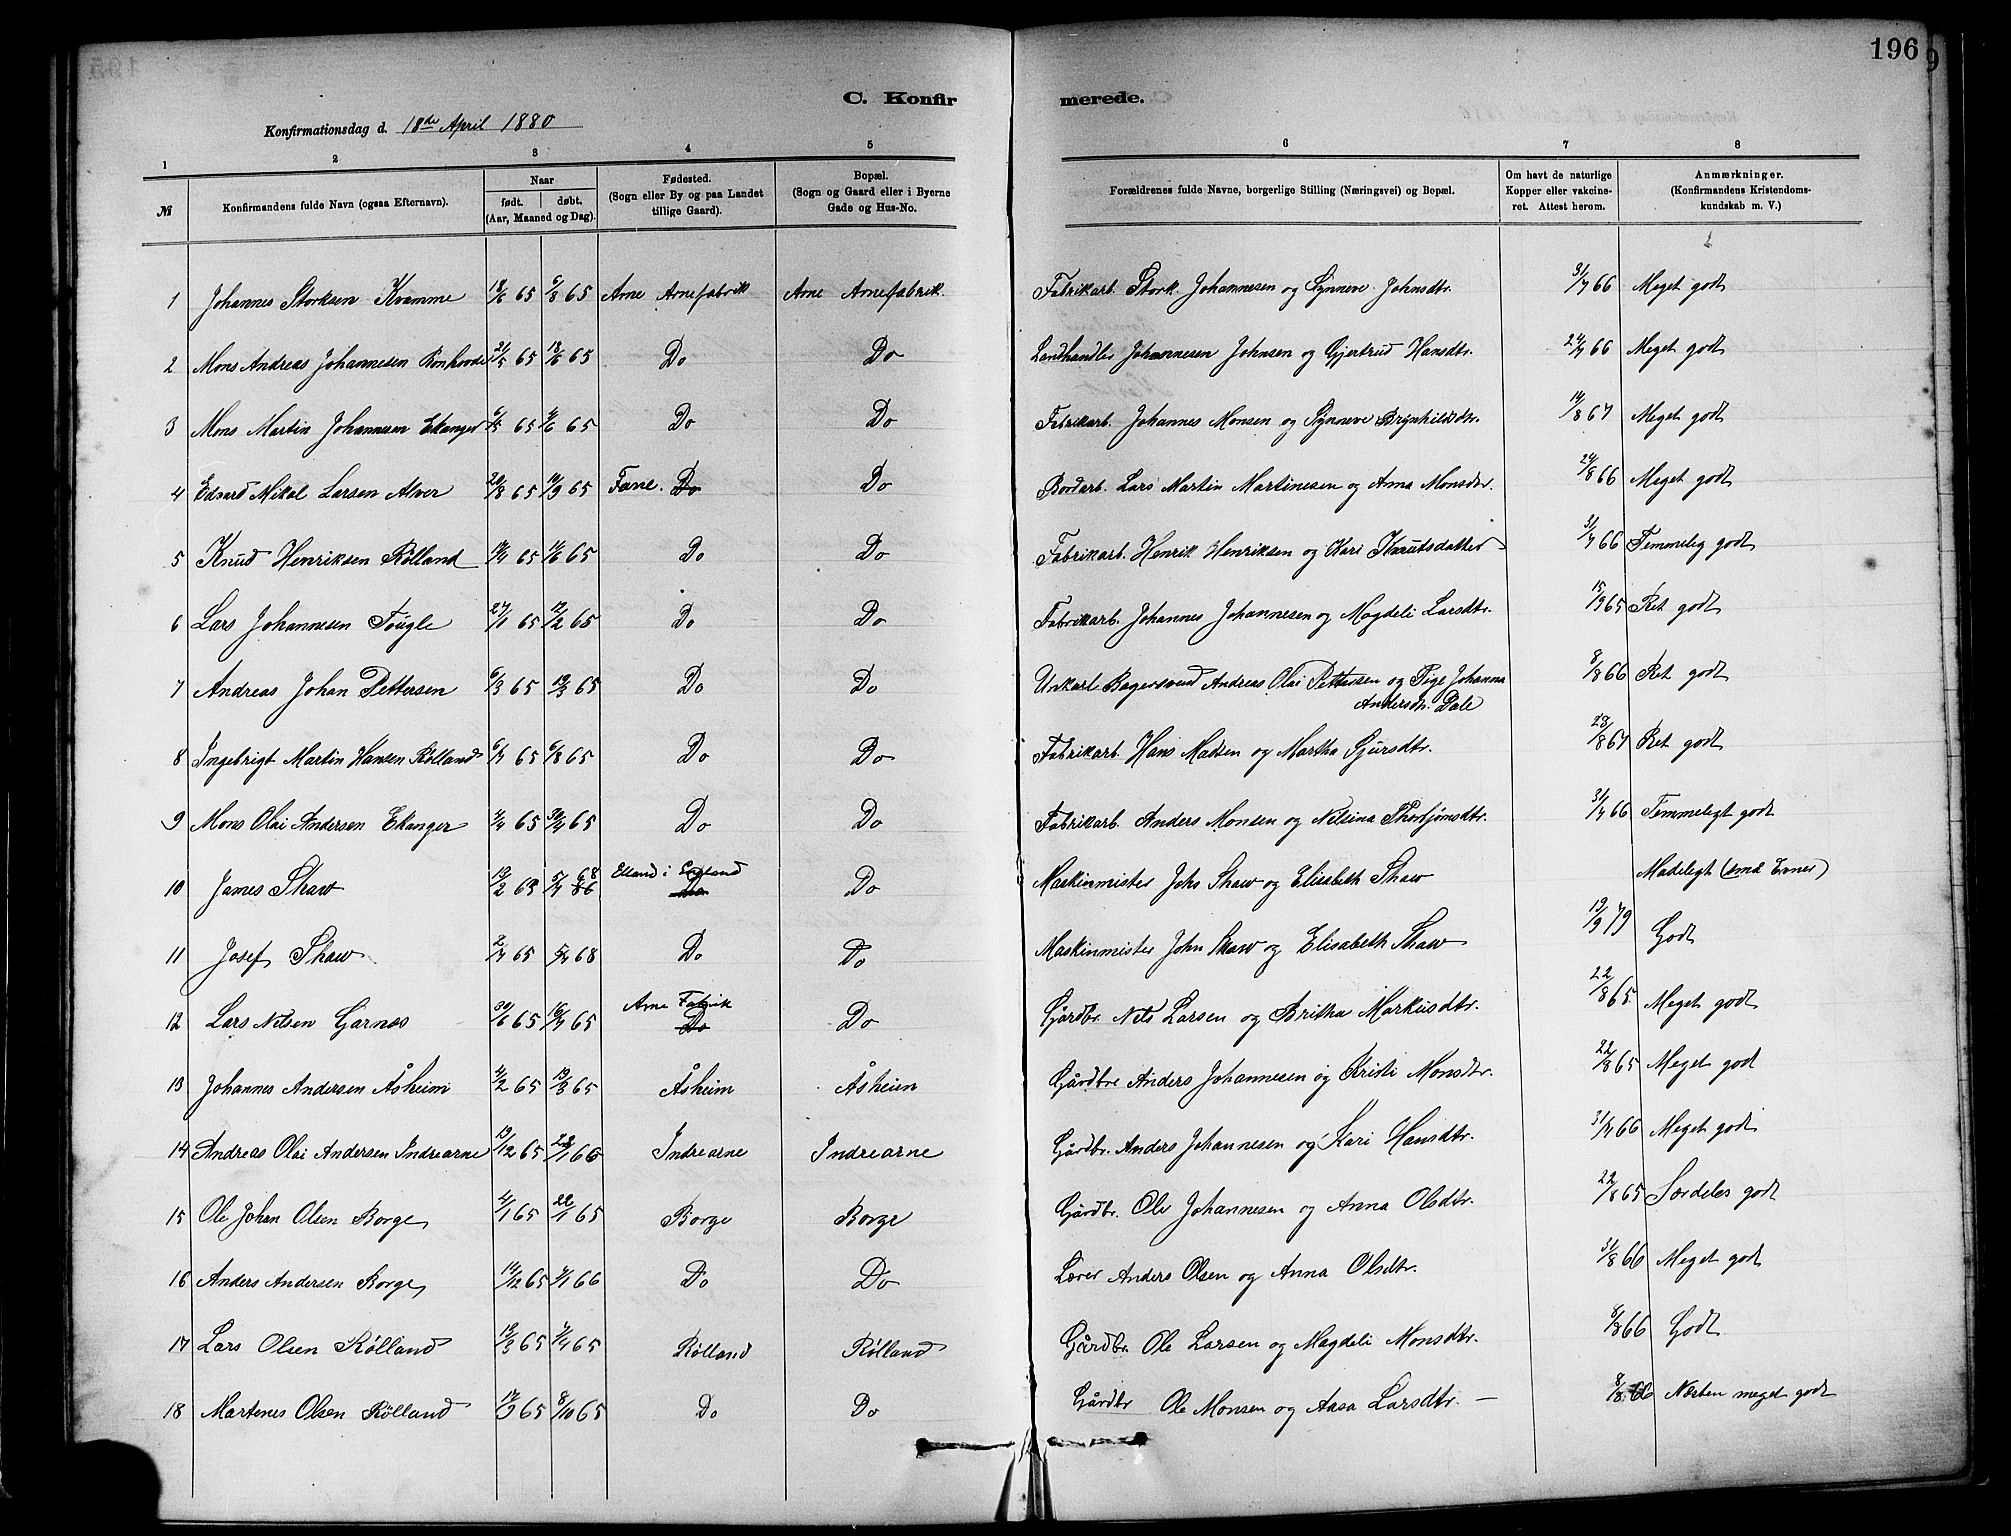 196
C. Konfirmerede.
Konfirmationsdag d. 18de April 1880
1 2 3 4 5 6 7 8
№ Konfirmandens fulde Navn (ogsaa Efternavn). Naar født. døbt. (Aar, Maaned og Dag). Fødested. (Sogn eller By og paa Landet tillige Gaard). Bopæl. (Sogn og Gaard eller i Byerne Gade og Hus-No. Forældrenes fulde Navne, borgerlige Stilling (Næringsvei) og Bopæl. Om havt de naturlige Kopper eller vakcineret. Attest herom. Anmærkninger. (Konfirmandens Kristendomskundskab m. V.)
1 Johannes Storksen Kvamme 18/6 65 6/8 65 Arne Arnefabrik Arne Arnefabrik. Fabrikarb. Stork. Johannesen og Synneve Johnsdtr. 31/7 66 Meget godt
2 Mons Andreas Johannesen Ronhovde 21/5 65 18/6 65 Do Do Landhandler Johannesen Johnsen og Gjertrud Hansdtr. 24/7 66 Meget godt
3 Mons Martin Johannesen Ekanger 6/5 65 4/6 65 Do Do Fabrikarb. Johannes Monsen og Synneve Brynhildsdtr. 14/8 67 Meget godt
4 Edvard Mikal Larsen Alver 20/8 65 10/9 65 Fane. Do Do Bordarb. Lars Martin Martinesen og Anna Monsdtr. 24/8 66 Meget godt
5 Knud Henriksen Rølland 14/4 65 11/6 65 Do Do Fabrikarb. Henrik Henriksen og Kari Knutsdatter 31/7 66 Temmelig godt
6 Lars Johannesen Tougle 27/1 65 12/2 65 Do Do Fabrikarb. Johannes Johannesen og Magdeli Larsdtr. 15/9 65 Ret godt
7 Andreas Johan Pettersen 6/3 65 19/3 65 Do Do Unkarl Bagersvend Andreas Olai Pettersen og Pige Johanna Andersdtr. Dale 8/8 66 Ret godt
8 Ingebrigt Martin Hansen Rølland 6/7 65 6/8 65 Do Do Fabrikarb. Hans Madsen og Martha Sjursdtr. 23/8 67 Ret godt
9 Mons Olai Andersen Ekanger 4/4 65 30/4 65 Do Do Fabrikarb. Anders Monsen og Nilsina Thorbjørnsdtr. 31/7 66 Temmeligt godt
10 James Shaw 19/2 63 5/7 68 Elland i England Do Do Maskinmister Johs Shaw og Elisabeth Shaw Madeligt (smd Evner)
11 Josef Shaw 2/7 65 5/7 68 Do Do Maskinmister John Shaw og Elisabeth Shaw 19/9 79 Godt
12 Lars Nilsen Garnæs 30/6 65 16/7 65 Arne Fabrik Do Do Gårdbr. Nils Larsen og Britha Markusdtr. 22/8 65 Meget godt
13 Johannes Andersen Åsheim 4/2 65 19/3 65 Åsheim Åsheim Gårdbr Anders Johannesen og Kristi Monsdtr. 22/8 65 Meget god
14 Andreas Olai Andersen Indrearne 19/12 65 28/1 66 Indrearne Indrearne Gårdbr. Anders Johannesen og Kari Hansdtr. 31/7 66 Meget godt
15 Ole Johan Olsen Borge 4/1 65 22/1 65 Borge Borge Gårdbr. Ole Johannesen og Anna Olsdtr. 22/8 65 Særdeles godt
16 Anders Andersen Borge 14/12 65 7/1 66 Do Do Lærer Anders Olsen og Anna Olsdtr. 31/8 66 Meget godt
17 Lars Olsen Rølland 19/3 65 7/4 65 Rølland Rølland Gårdbr. Ole Larsen og Magdeli Monsdtr. 8/8 66 Godt
18 Martenes Olsen Rølland 17/9 65 8/10 65 Do Do Gårdbr Ole Monsen og Aasa Larsdtr. — 8/8 66 Næsten meget godt